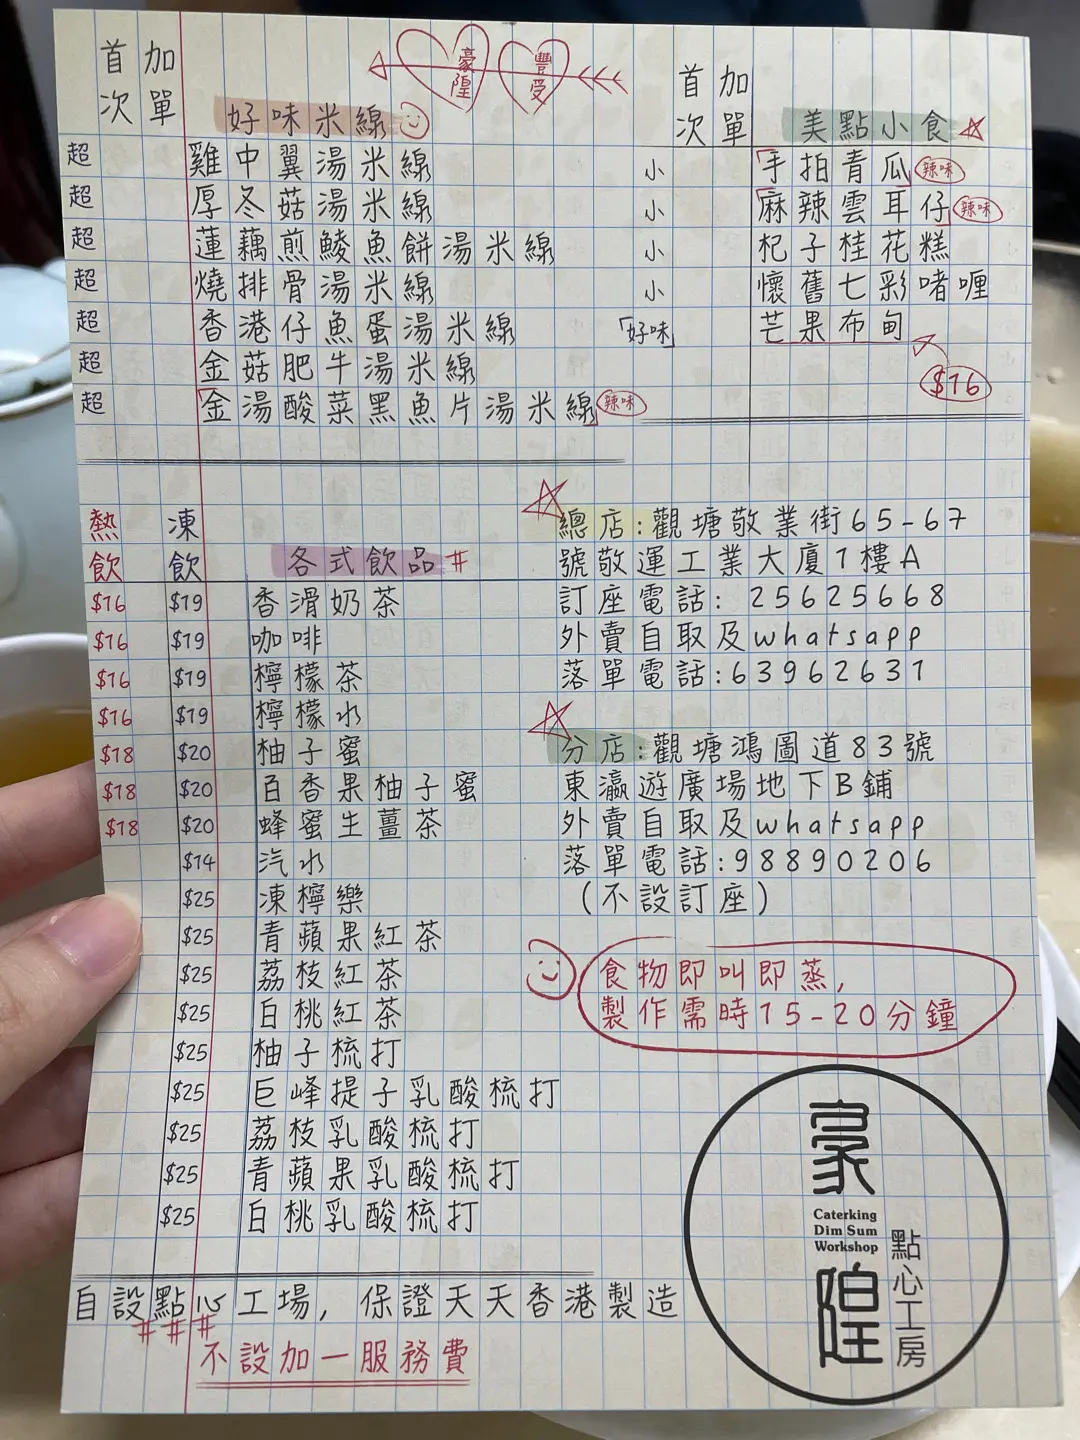 首 加
次 單
好味米線
豪隍
豐受
超 雞中翼湯米線
超 厚冬菇湯米線
超 蓮藕煎鯪魚餅湯米線
超 燒排骨湯米線
超 香港仔魚蛋湯米線
超 金菇肥牛湯米線
超 「金湯酸菜黑魚片湯米線」 辣味
首 加
次 單
美點小食
小 「手拍青瓜」 辣味
小 「麻辣雲耳仔」 辣味
小 杞子桂花糕
小 懷舊七彩啫喱
「好味」 芒果布甸
$16
熱飲 凍飲 各式飲品#
$16 $19 香滑奶茶
$16 $19 咖啡
$16 $19 檸檬茶
$16 $19 檸檬水
$18 $20 柚子蜜
$18 $20 百香果柚子蜜
$18 $20 蜂蜜生薑茶
$14 汽水
$25 凍檸樂
$25 青蘋果紅茶
$25 荔枝紅茶
$25 白桃紅茶
$25 柚子梳打
$25 巨峰提子乳酸梳打
$25 荔枝乳酸梳打
$25 青蘋果乳酸梳打
$25 白桃乳酸梳打
總店:觀塘敬業街65-67
號敬運工業大廈1樓A
訂座電話: 25625668
外賣自取及whatsapp
落單電話:63962631
分店:觀塘鴻圖道83號
東瀛遊廣場地下B鋪
外賣自取及whatsapp
落單電話:98890206
(不設訂座)
食物即叫即蒸,
製作需時15-20分鐘
豪隍
Caterking
Dim Sum
Workshop
點心工房
自設點心工場, 保證天天香港製造
###
不設加一服務費